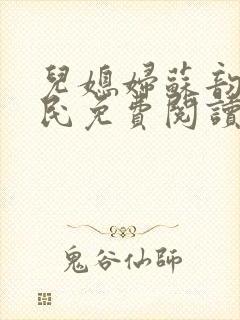 兒媳婦蘇韵
民免費閱讀
鬼谷仙師